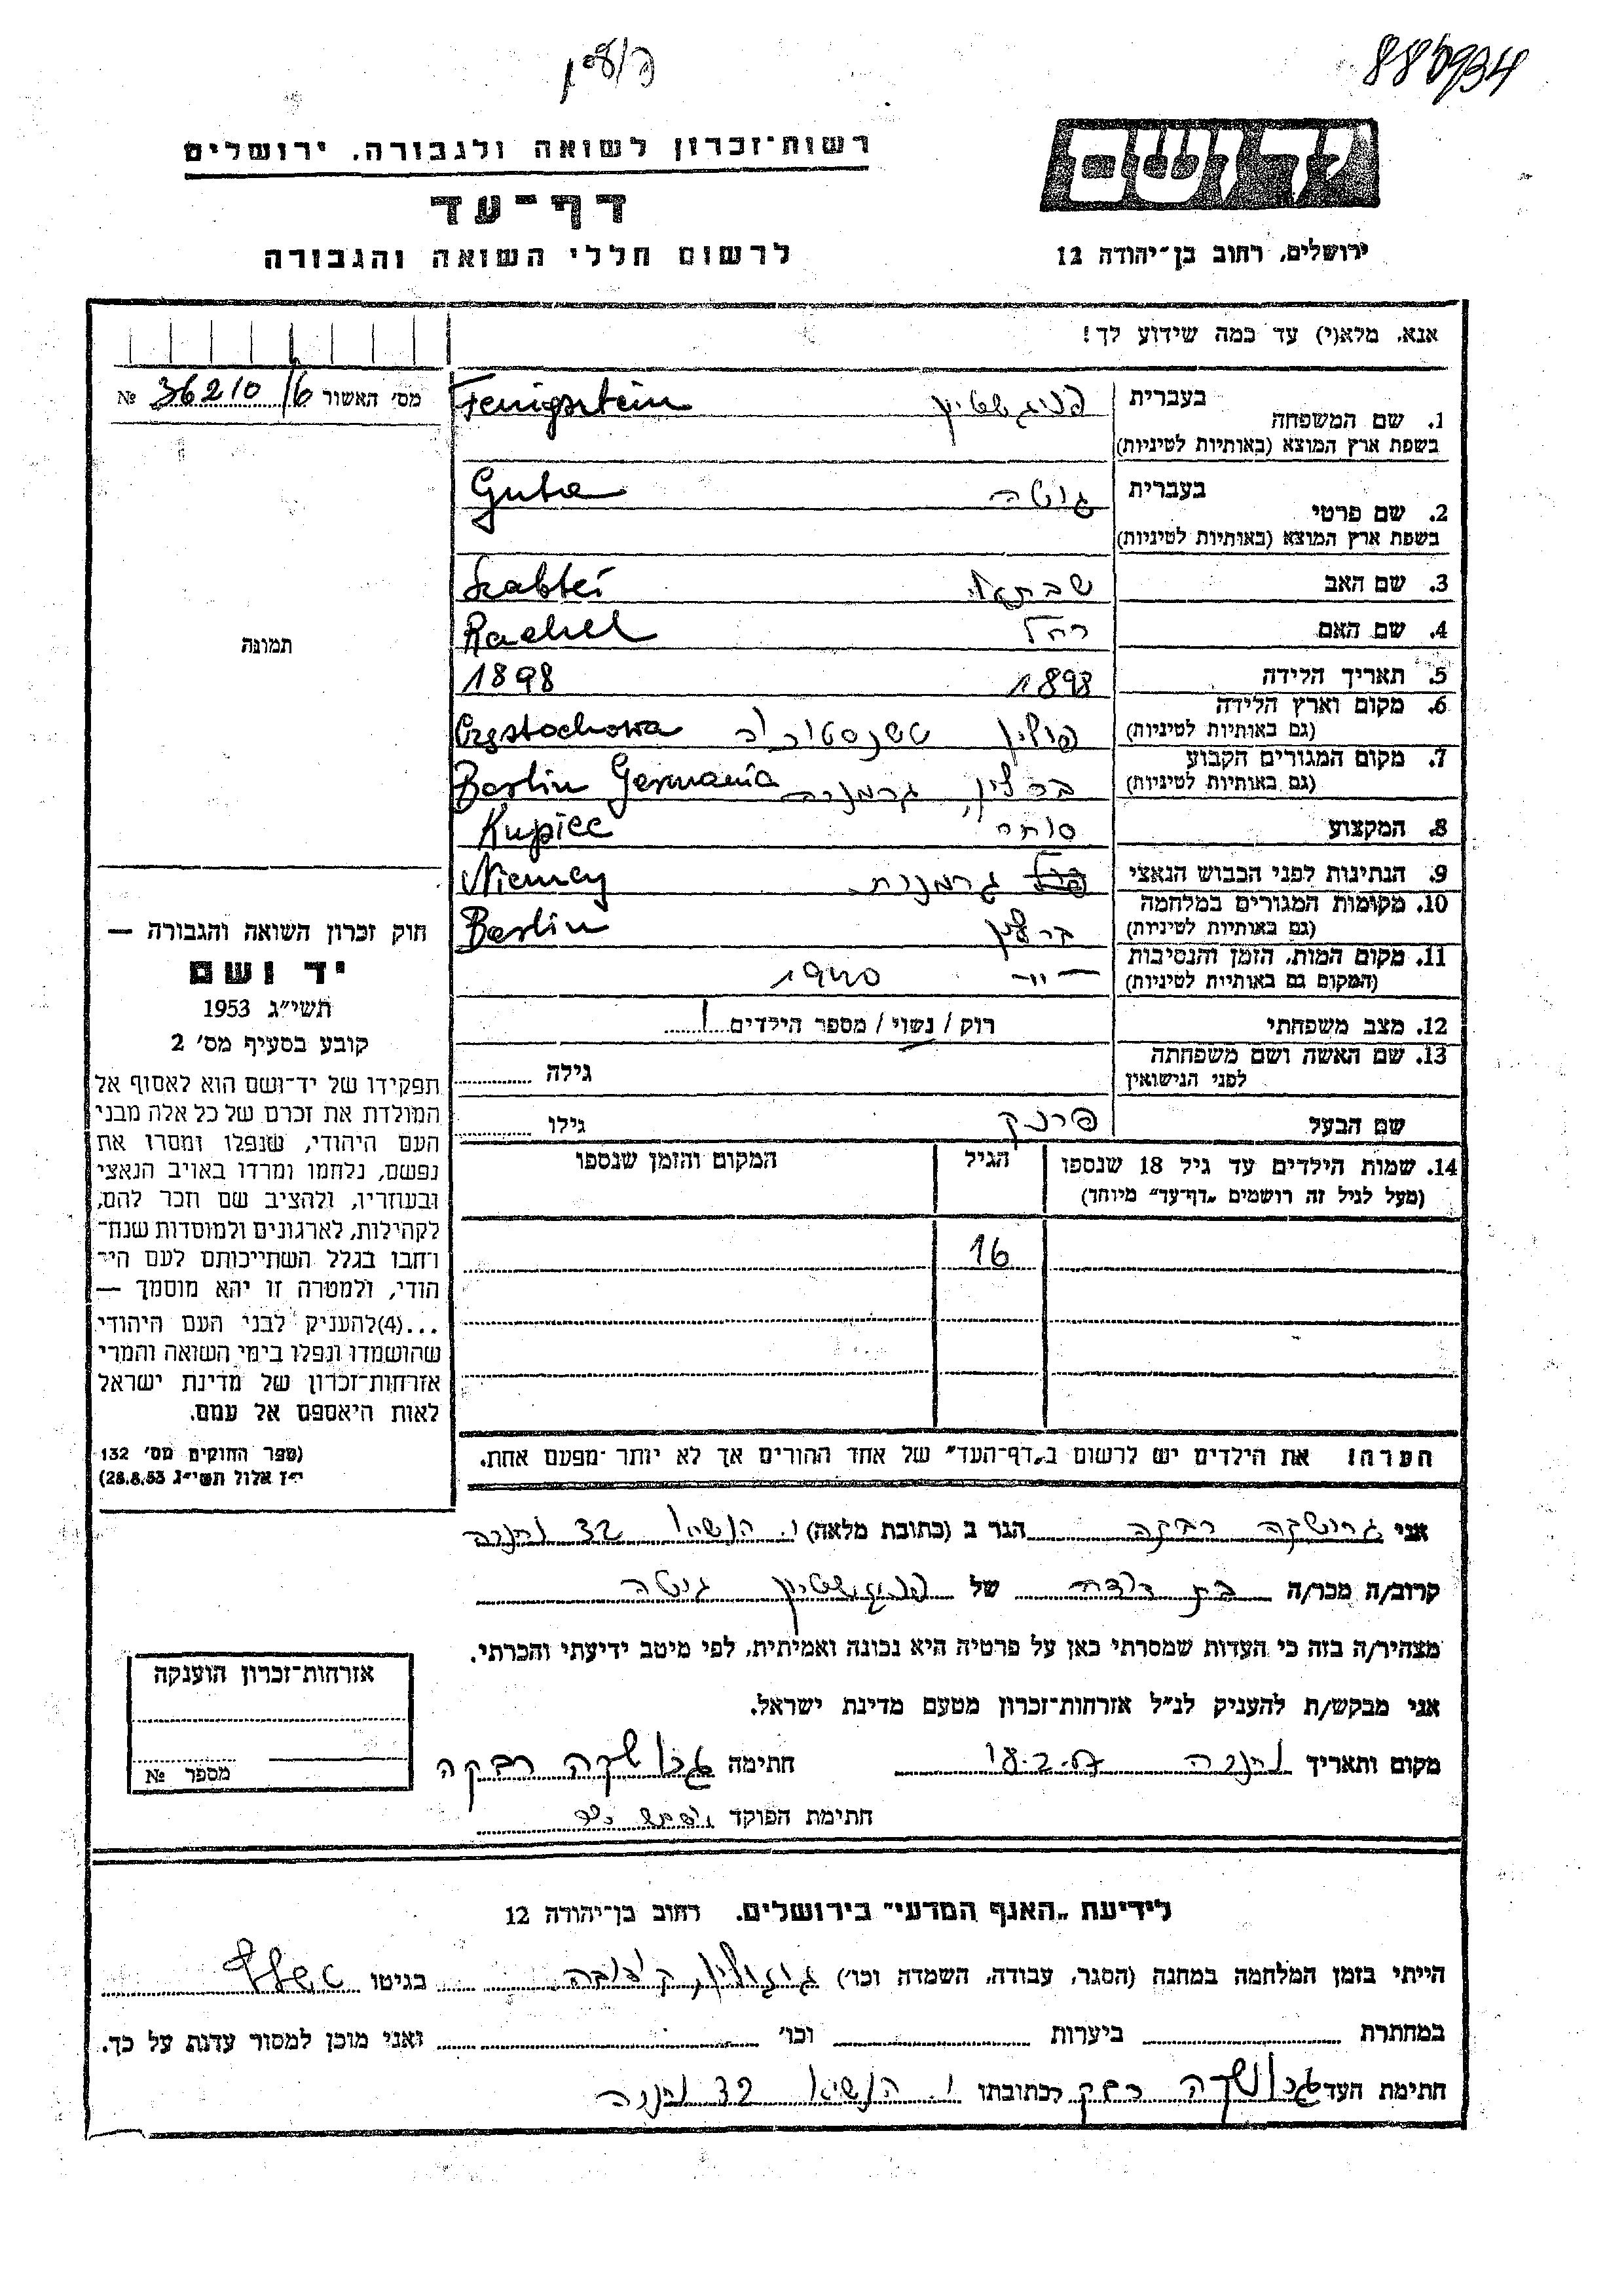 880934
רשות־זכרון לשואה ולגבורה, ירושלים
ידושם
דף־עד
לרשום חללי השואה והגבורה
ירושלים, רחוב בן־יהודה 12
אנא, מלא(י) עד כמה שידוע לך!
מס' האשור 36210/6 №
1. שם המשפחה
בעברית פניגשטיין
בשפת ארץ המוצא (באותיות לטיניות) Fenigsztein
2. שם פרטי
בעברית גוטה
בשפת ארץ המוצא (באותיות לטיניות) Guta
3. שם האב שבתאי Szabtei
4. שם האם רחל Rachel
תמונה
5. תאריך הלידה 1898 1898
6. מקום וארץ הלידה
(גם באותיות לטיניות) פולין טשנסטוכוב Częstochowa
7. מקום המגורים הקבוע
(גם באותיות לטיניות) ברלין, גרמניה Berlin Germania
8. המקצוע סוחר Kupiec
9. הנתינות לפני הכבוש הנאצי גרמנית Niemcy
10. מקומות המגורים במלחמה
(גם באותיות לטיניות) ברלין Berlin
11. מקום המות, הזמן והנסיבות
(המקום גם באותיות לטיניות) —"— 1940
12. מצב משפחתי רוק / נשוי / מספר הילדים 1
13. שם האשה ושם משפחתה
לפני הנישואין גילה
שם הבעל פרנק גילו
14. שמות הילדים עד גיל 18 שנספו הגיל המקום והזמן שנספו
(מעל לגיל זה רושמים „דף־עד" מיוחד)
16
חוק זכרון השואה והגבורה —
יד ושם
תשי"ג 1953
קובע בסעיף מס' 2
תפקידו של יד־ושם הוא לאסוף אל
המולדת את זכרם של כל אלה מבני
העם היהודי, שנפלו ומסרו את
נפשם, נלחמו ומרדו באויב הנאצי
ובעוזריו, ולהציב שם וזכר להם,
לקהילות, לארגונים ולמוסדות שנח־
רחבו בגלל השתייכותם לעם היר
הודי, ולמטרה זו יהא מוסמך —
...(4)להעניק לבני העם היהודי
שהושמדו ונפלו בימי השואה והמרי
אזרחות־זכרון של מדינת ישראל
לאות היאספם אל עמם.
(ספר החוקים מס' 132
י"ז אלול תשי"ג 28.8.53)
הערה! את הילדים יש לרשום ב„דף־העד" של אחד ההורים אך לא יותר מפעם אחת.
אני גרושקה רבקה הגר ב (כתובת מלאה) הנשיא 32
קרוב/ה מכר/ה בת דודה של פניגשטיין גיטה
מצהיר/ה בזה כי העדות שמסרתי כאן על פרטיה היא נכונה ואמיתית, לפי מיטב ידיעתי והכרתי.
אני מבקש/ת להעניק לנ"ל אזרחות־זכרון מטעם מדינת ישראל.
מקום ותאריך חתימה גרושקה רבקה
חתימת הפוקד
אזרחות־זכרון הוענקה
מספר №
לידיעת „האגף המדעי" בירושלים, רחוב בן־יהודה 12
הייתי בזמן המלחמה במחנה (הסגר, עבודה, השמדה וכו') בגיטו
במחתרת ביערות וכו' ואני מוכן למסור עדות על כך.
חתימת העד גרושקה רבקה וכתובתו הנשיא 32